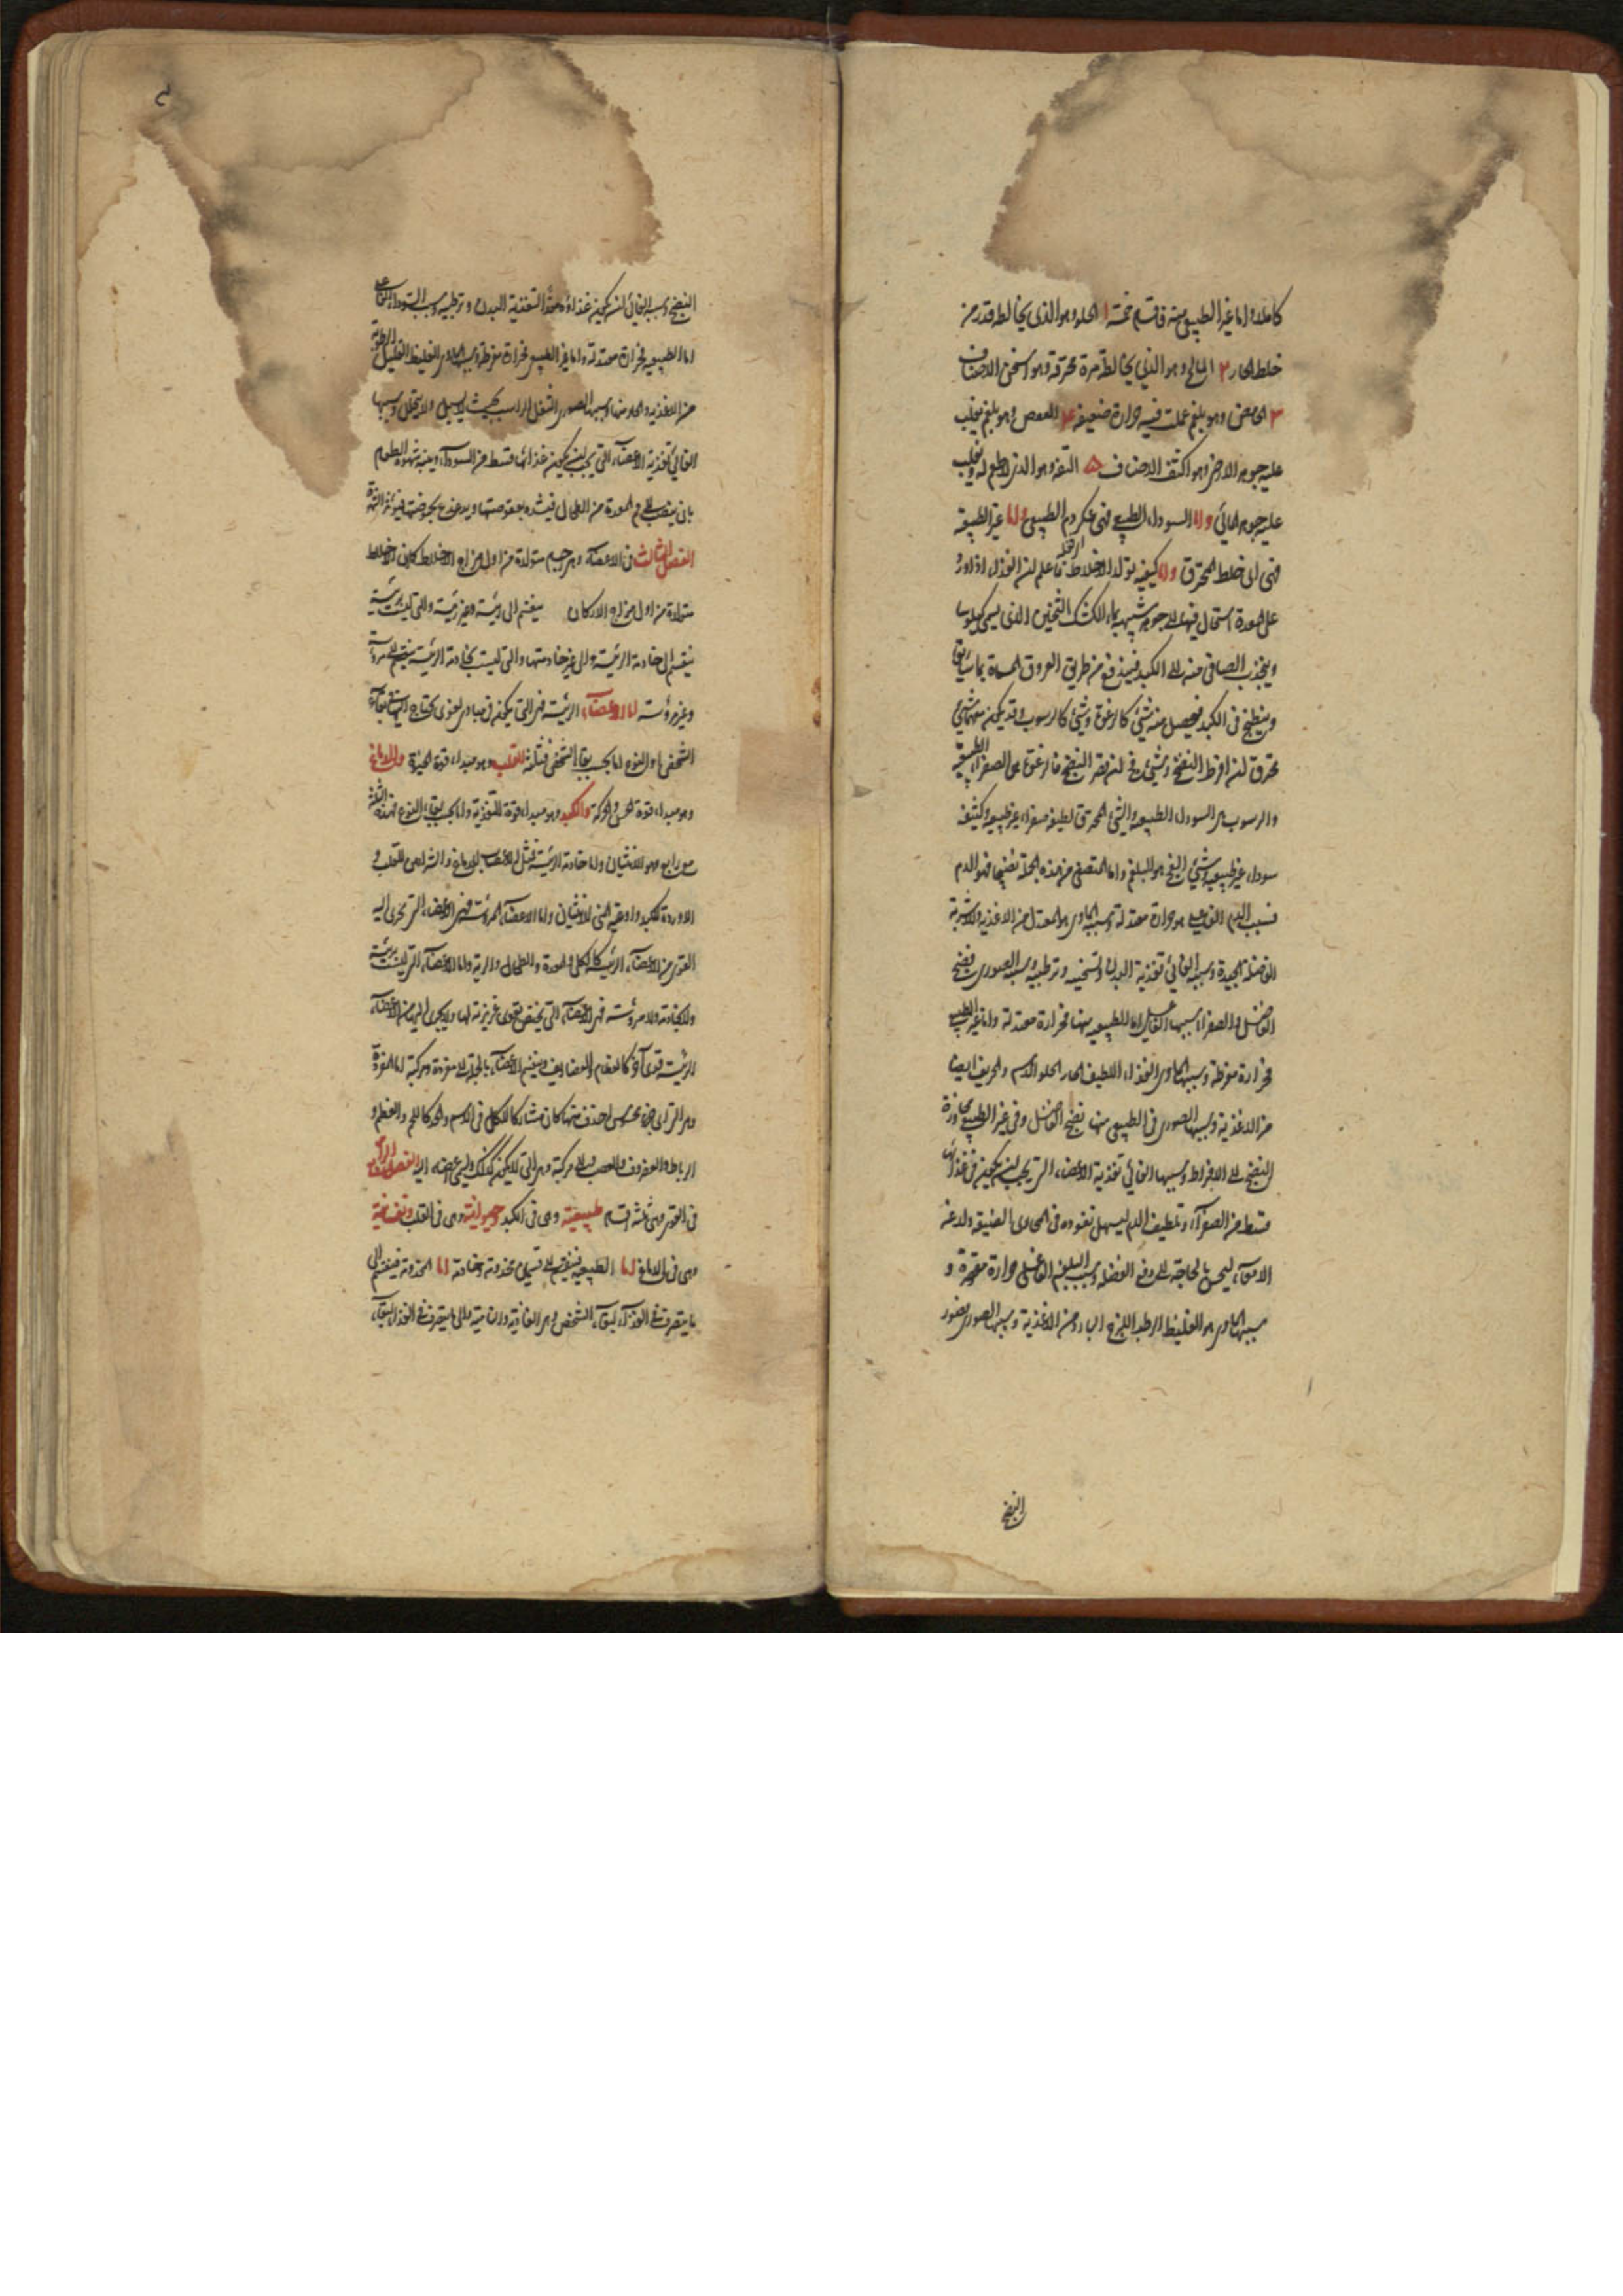 كاملا واما غير الطبيعي منه فاقسام خمسة ا الحلو وهو الذي يخالطه قدر من
خلط الحار ٢ المالح وهو الذي يخالطه مرة محرقة وهو اسخن الاصناف
٣ الحامض وهو بلغم عملت فيه حرارة ضعيفة ٤ العفص وهو بلغم يغلب
عليه جوهر الارض وهو اكثف الاصناف ٥ التفه وهو الذي لا طعم له ويغلب
عليه جوهر المائي واما السوداء الطبيعي فهي عكر دم الطبيعي واما غير الطبيعية
فهي اي خلط المحترق واما كيفية تولد الاخلاط فاعلم ان الغذاء اذا ورد
على المعدة استحال فيها الى جوهر شبيه بماء الكشك الثخين الذي يسمى كيلوسا
وينجذب الصافي منه الى الكبد فيندفع من طريق العروق المسماة بماساريقا
وينطبخ في الكبد فيحصل منه شيء كالرغوة وشيء كالرسوب وقد يكون معهما شيء
محترق ان افرط النضج وشيء فج ان قصر النضج فالرغوة هي الصفراء الطبيعية
والرسوب هي السوداء الطبيعية والشيء المحترق لطيفه صفراء غير طبيعية وكثيفه
سوداء غير طبيعية وشيء الفج هو البلغم واما المتصفى من هذه الجملة نضيجا فهو الدم
فسبب الدم الفاعلي هو حرارة معتدلة وسببه المادي هو المعتدل من الاغذية والاشربة
الفاضلة الجيدة وسببه الغائي تغذية البدن وتسخينه وترطيبه وسببه الصوري نضج
الفاضل والصفراء سببها الفاعلي اما الطبيعي منها فحرارة معتدلة واما غير الطبيعي
فحرارة مفرطة وسببها المادي الغذاء اللطيف الحار الحلو الدسم والحريف ايضا
من الاغذية وسببها الصوري في الطبيعي منها نضج الفاضل وفي غير الطبيعي
النضج الى الافراط وسببها الغائي تغذية الاعضاء التي يجب ان يكون في غذائها
قسط من الصفراء وتلطيف الدم ليسهل نفوذه في المجاري الضيقة ولدغه
الامعاء ليحس بالحاجة الى دفع الفضلة وسبب البلغم الفاعلي حرارة مقصرة و
سببها المادي هو الغليظ الرطب اللزج البارد من الاغذية وسببها الصوري قصور
النضج
النضج وسببه الغائي ان يكون غذاؤه معدا لتغذية البدن وترطيبه وسبب السوداء الفاعلي
اما الطبيعية فحرارة معتدلة واما غير الطبيعي فحرارة مفرطة وسببها المادي الغليظ القليل الرطوبة
من الاغذية والحار منها وسببها الصوري الثفل الراسب بحيث لا يسيل ولا يتحلل وسببها
الغائي تغذية الاعضاء التي يجب ان يكون غذائها قسط من السوداء وينبه شهوة الطعام
بان ينصب الى فم المعدة من الطحال فيشده بعفوصتها ويدغدغ بحموضتها فيثور الشهوة
الفصل الثالث في الاعضاء وهي جسم متولدة من اول مزاج الاخلاط كما ان الاخلاط
متولدة من اول مزاج الاركان ينقسم الى رئيسة وغير رئيسة والتي ليست برئيسة
ينقسم الى خادمة الرئيسة والى غير خادمتها والتي ليست بخادمة الرئيسة ينقسم الى مرؤسة
وغير مرؤسة اما الاعضاء الرئيسة فهي التي يكون مبادي لقوى يحتاج اليها في بقاء
الشخص او النوع اما بحسب بقاء الشخص فثلثة القلب وهو مبداء قوة الحيوة والدماغ
وهو مبداء قوة الحس والحركة والكبد وهو مبداء قوة التغذية واما بحسب بقاء النوع فهذه الثلثة
مع رابع وهو الانثيان واما خادمة الرئيسة فمثل الاعصاب للدماغ والشرايين للقلب و
الاوردة للكبد واوعية المني للانثيان واما الاعضاء المرؤسة فهي الاعضاء التي تجري اليه
القوى من الاعضاء الرئيسة كالكلى والمعدة والطحال والرية واما الاعضاء التي ليست برئيسة
ولا بخادمة ولا مرؤسة فهي الاعضاء التي تختص بقوى غريزية لها ولا يجري اليها من الاعضاء
الرئيسة قوى اخر كالعظام والغضاريف وينقسم الاعضاء بالجملة الى مفردة ومركبة اما المفردة
وهي التي اي جزء محسوس اخذت منها كان مشاركا للكل في الاسم والحد كاللحم والعظم و
الرباط والغضروف والعصب والى مركبة وهي التي لا يكون كذلك ويسمى اعضاء الية الفصل الرابع
في القوى وهي ثلثة اقسام طبيعية وهي في الكبد وحيوانية وهي في القلب ونفسانية
وهي في الدماغ اما الطبيعية فينقسم الى قسمين مخدومة وخادمة اما المخدومة فينقسم الى
ما يتصرف في الغذاء لبقاء الشخص وهي الغاذية والنامية والى ما يتصرف في الغذاء لبقاء